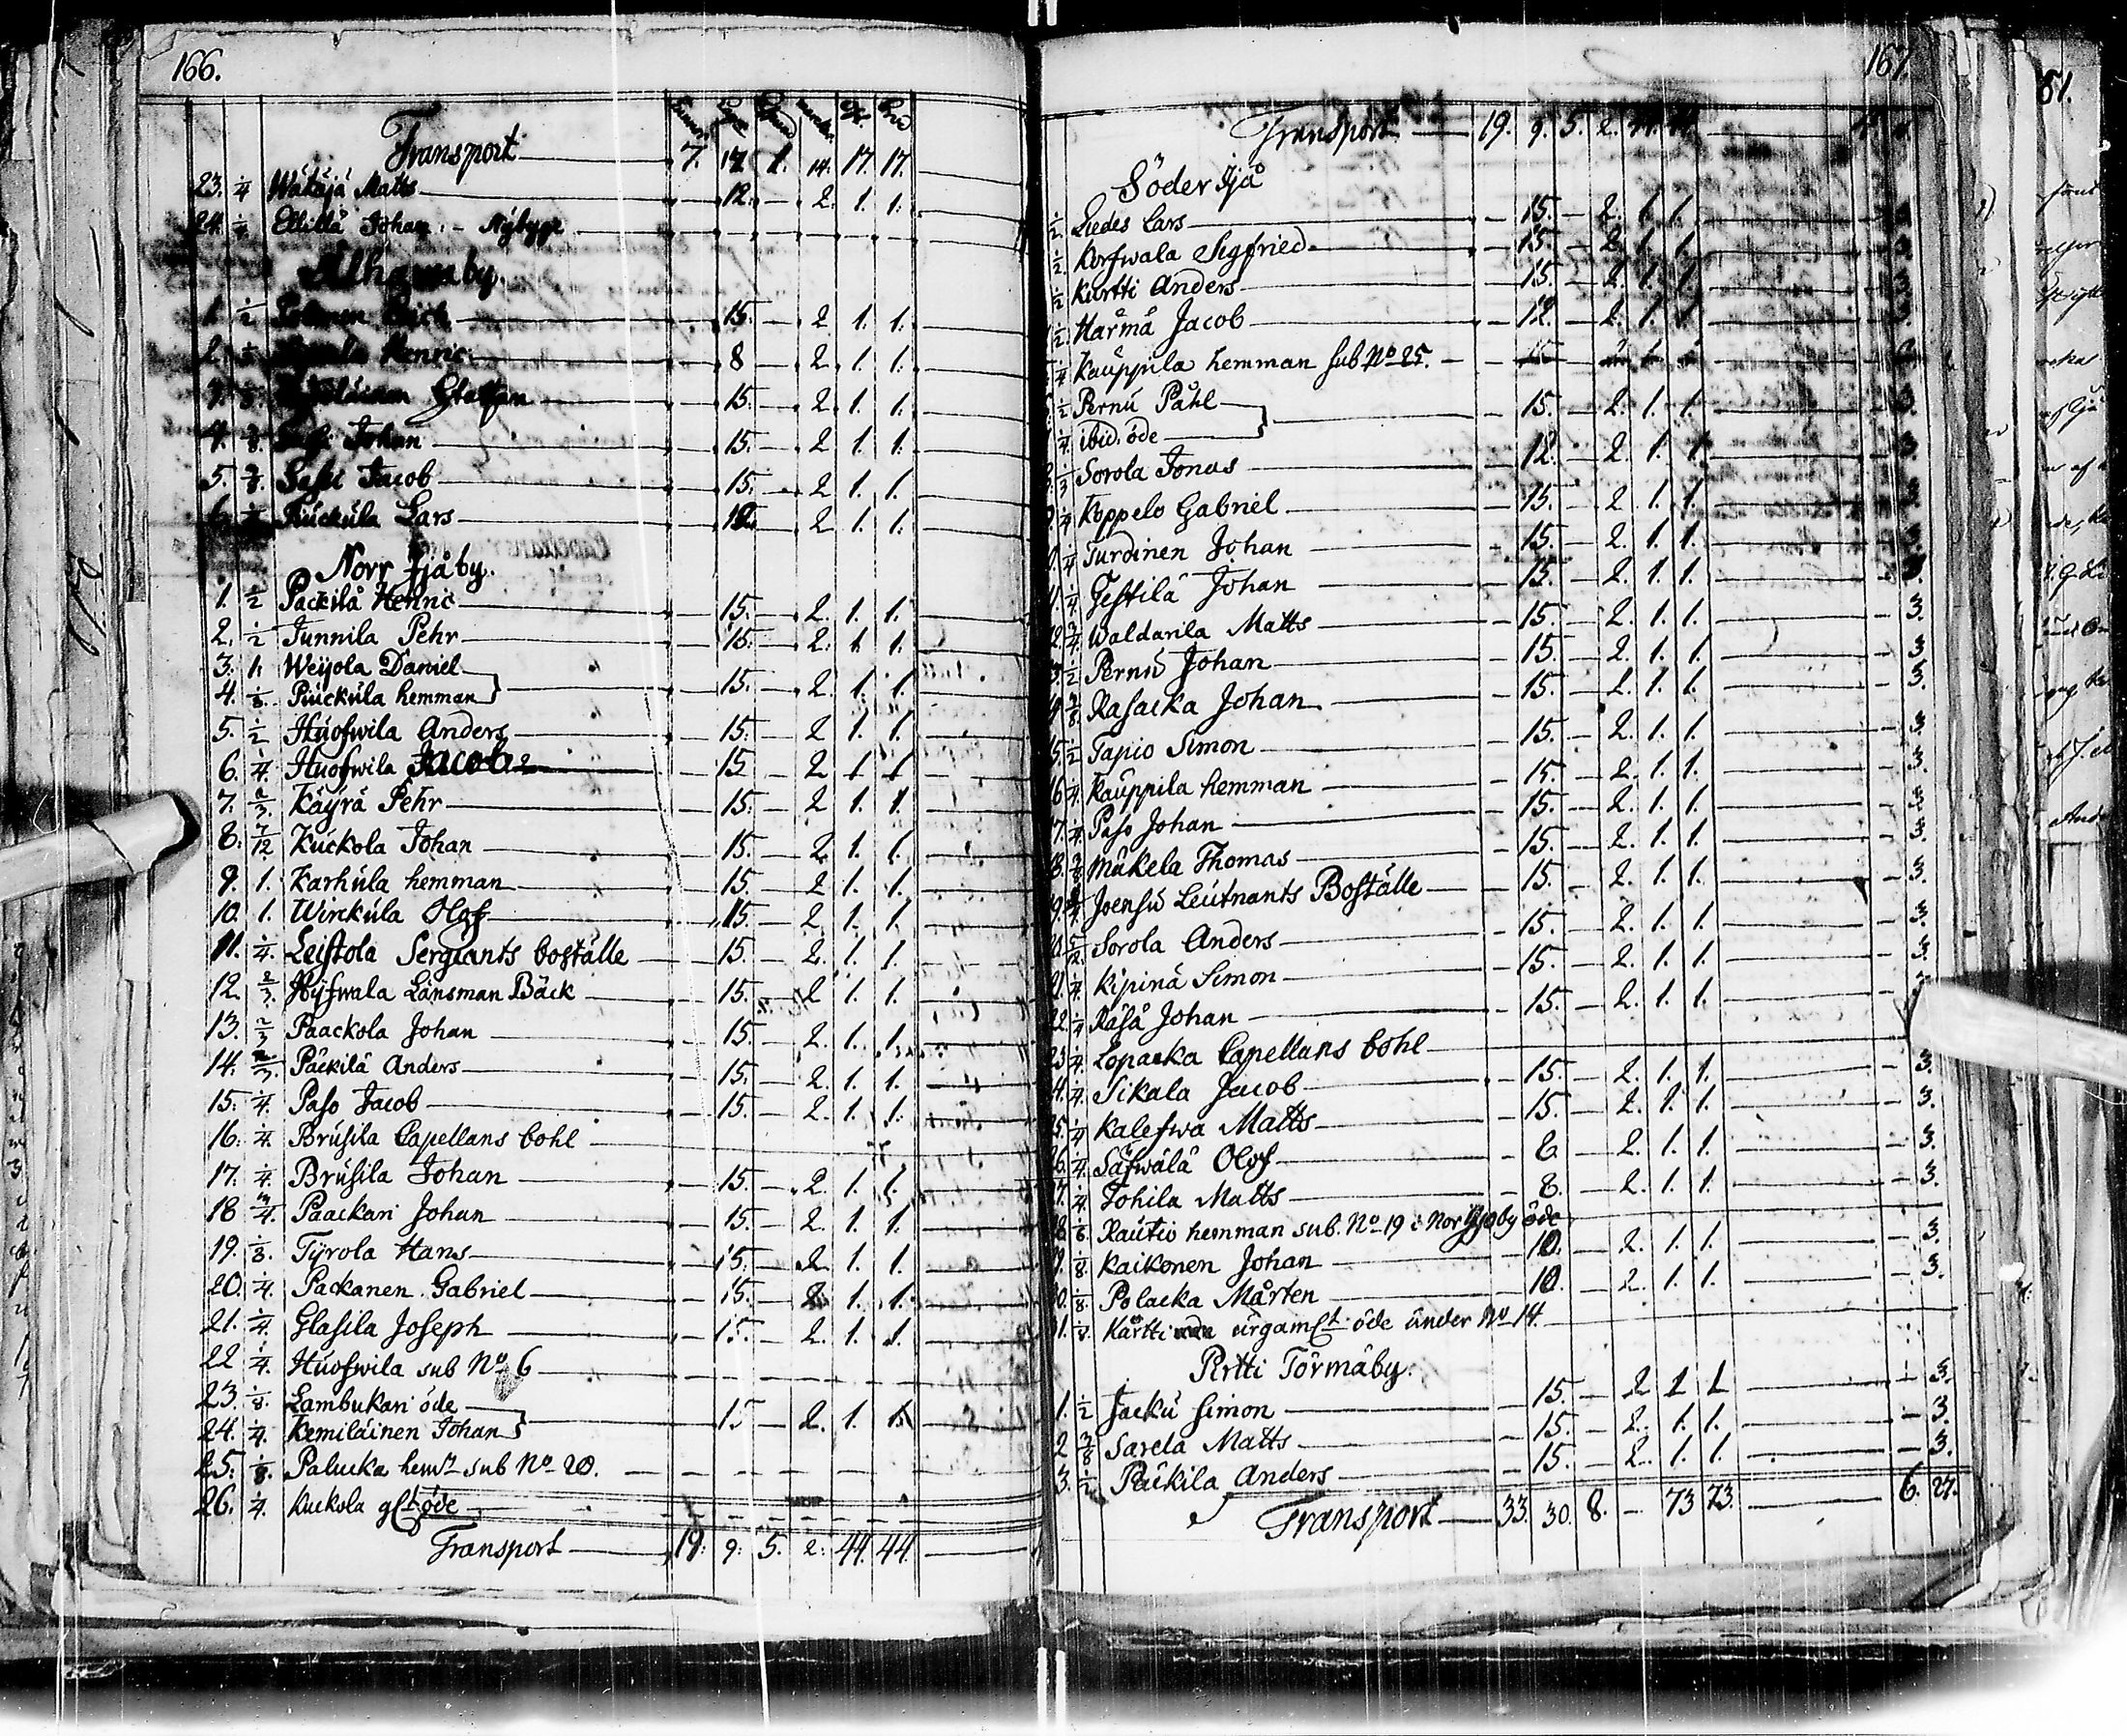 166.
Transport 7. 12 1. 14. 17. 17.
23. 1/4 Wätäjä Matts 12. 2. 1. 1.
24. 1/4 Ellilä Johan Nybyge
Alhamaby.
1. 1/2 15. 2 1. 1.
2. Henric 8 2. 1. 1.
Staffan 15. 2. 1. 1.
4. 3/8. Johan 15. 2 1. 1.
5. 3/8. Sassi Jacob 15. 2 1. 1.
Ruckula Lars 2. 1. 1.
Norr Ijåby.
1. 1/2 Päckilä Henric 15. 2. 1. 1.
2. 1/2 Junnila Pehr 15. 2. 1. 1.
3. 1. Weijola Daniel
4. 1/8. Ruckula hemman 15. 2. 1. 1.
5. 1/2 Huofwila Anders 15. 2 1. 1.
6. 1/4. Huofwila Jacob 15 2 1. 1.
7. 2/3. Käyrä Pehr 15. 2 1. 1.
8. 7/12 Kuckola Johan 15. 2. 1. 1.
9. 1. Karhula hemman 15. 2 1. 1.
10. 1. Wirckula Olof 15. 2. 1. 1.
11. 1/4. Leistola Sergiants boställe 15. 2. 1. 1.
12. 2/3. Hyfwala Länsman Bäck 15. 2 1. 1.
13. 2/3 Paackola Johan 15. 2. 1. 1.
14. 2/3. Päckilä Anders 15. 2. 1. 1.
15. 1/4. Paso Jacob 15. 2. 1. 1.
16. 1/4. Brusila Capellans bohl
17. 1/4. Brusila Johan 15. 2. 1. 1.
18 3/4. Paackari Johan 15. 2. 1. 1.
19. 1/8. Tyrola Hans 15. 2 1. 1.
20. 1/4. Packanen Gabriel 15. 2. 1. 1.
21. 1/4. Glasila Joseph 15. 2. 1. 1.
22 1/4. Huofwila sub No 6
23. 1/8. Lambukari öde
24. 1/4. Kemiläinen Johan 15 2. 1. 1.
25. 1/8. Palucka hemn sub No 20.
26. 1/4. Kuckola öde
Transport 19. 9. 5. 2. 44. 44.
167.
Transport 19. 9. 5. 2. 44. 44.
Söder Ijå
1/2. Liedes Lars 15. 2. 1. 1.
1/2. Korfwala Sigfried 15. 2. 1. 1.
1/2. Kurtti Anders 15. 2. 1. 1.
1/2. Härmä Jacob 12. 2. 1. 1. 3.
1/4 Kauppila hemman sub No 25.
1/2 Pernu Påhl
1/4. ibid. öde 15. 2. 1. 1.
1/3 Sorola Jonas 12. 2. 1. 1. 3.
1/4 Koppelo Gabriel 15. 2. 1. 1.
1/4 Turdinen Johan 15. 2. 1. 1.
1/4. Testilä Johan 15. 2. 1. 1.
3/4. Waldarila Matts 15. 2. 1. 1. 3.
1/2 Pernu Johan 15. 2. 1. 1. 3
3/8. Rasacka Johan 15. 2. 1. 1. 3.
1/2 Tapio Simon 15. 2. 1. 1. 3
16 1/4. Kauppila hemman 15. 2. 1. 1. 3.
1/4. Paso Johan 15. 2. 1. 1. 3.
Mäkela Thomas 15. 2. 1. 1. 3.
Joensu Leutnants Boställe 15. 2. 1. 1. 3.
5/12. Sorola Anders 15. 2. 1. 1. 3.
1/4. Kipinä Simon 15. 2. 1. 1. 3.
22. 1/4 Räsä Johan 15. 2. 1. 1.
23 1/4. Lopacka Capellans bohl
1/4. Sikala Jacob 15. 2. 1. 1. 3.
1/4 Kalefwa Matts 15. 2. 1. 1. 3.
1/4. Säfwälä Olof 2. 1. 1. 3.
1/4 Tohila Matts 8. 2. 1. 1. 3.
Rautio hemman sub. No 19 i Norr Ijoby öde
1/8. Kaikonen Johan 10. 2. 1. 1. 3.
1/8. Polacka Mårten 10. 2. 1. 1. 3.
1/8. Kärtti öde under No 14.
Pirtti Törmäby.
1. 1/2 Jacku Simon 15. 2 1 1 3.
2 3/8 Sarela Matts 15. 2. 1. 1. 3.
3. 1/2 Päckila Anders 15. 2. 1. 1. 3.
Transport 33. 30. 8. 73 73. 6. 27.
81.